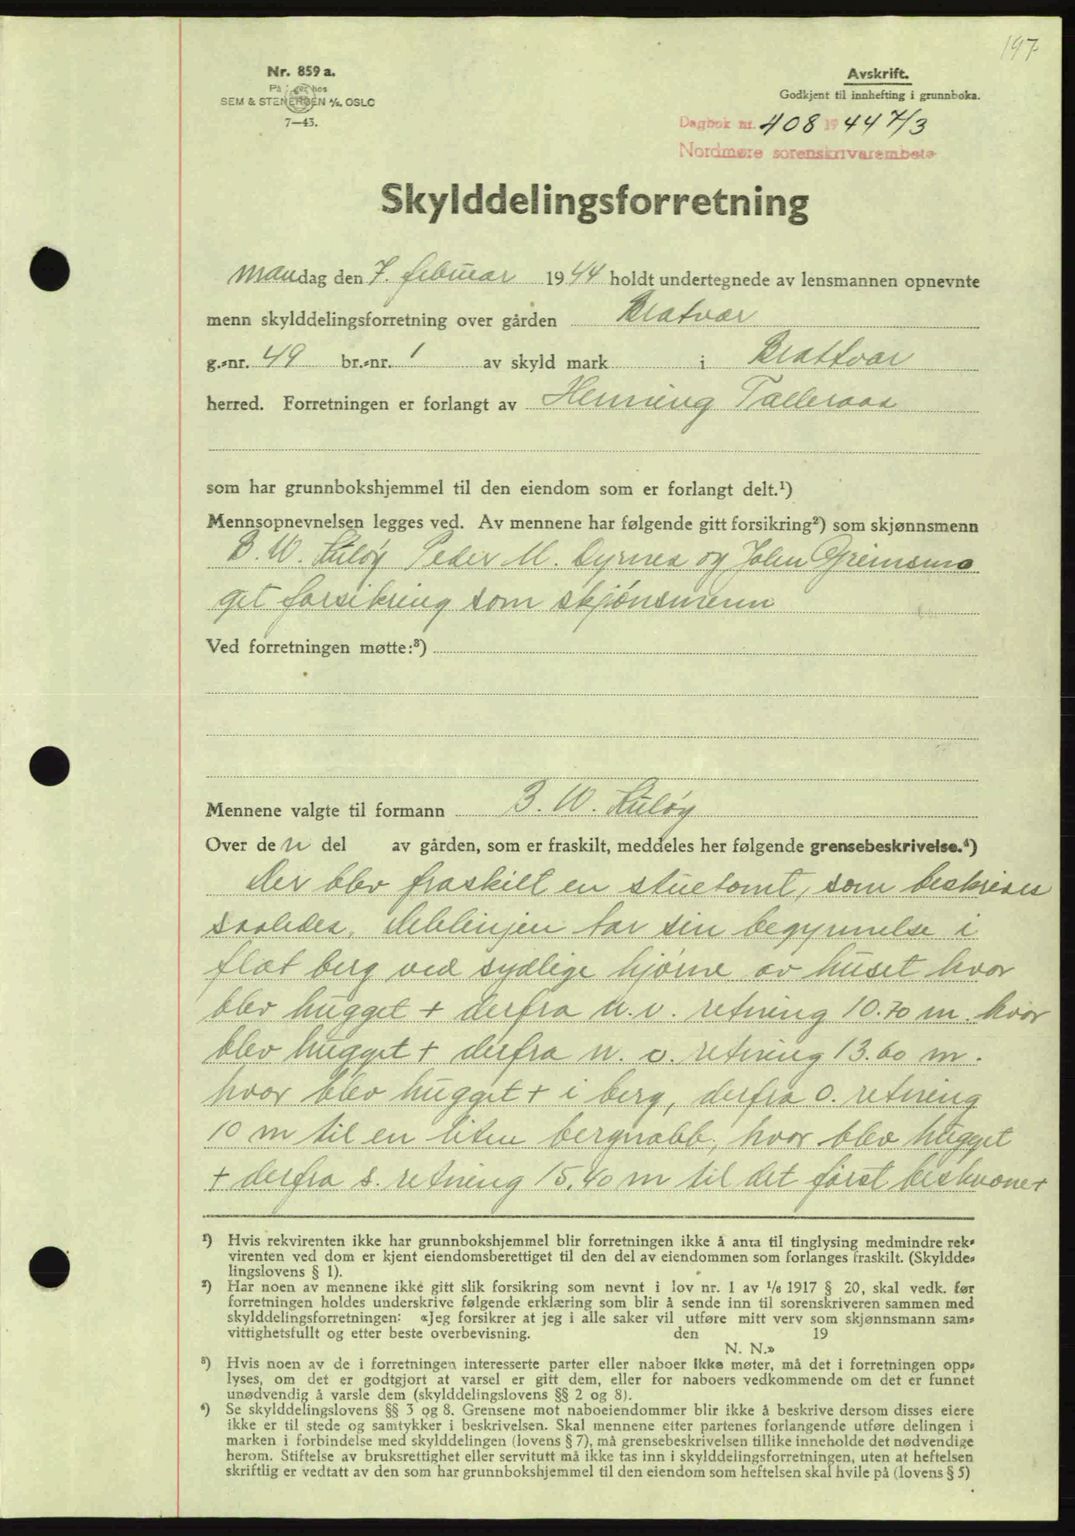 197
Nr. 859 a.
På lager hos
SEM & STENERSEN A/S, OSLO
7—43.
Avskrift.
Godkjent til innhefting i grunnboka.
Dagbok nr. 408 1944 7/3
Nordmøre sorenskrivarembete
Skylddelingsforretning
mandag den 7. februar 1944 holdt undertegnede av lensmannen opnevnte
menn skylddelingsforretning over gården Bratvær
g.-nr. 49 br.-nr. 1 av skyld mark i Brattvær
herred. Forretningen er forlangt av Henning Talleraas
som har grunnbokshjemmel til den eiendom som er forlangt delt.¹)
Mennsopnevnelsen legges ved. Av mennene har følgende gitt forsikring²) som skjønnsmenn
B. W. Kuløy Peder M. Dyrnes og John Grimsmo
get forsikring som skjønsmenn
Ved forretningen møtte:³)
Mennene valgte til formann B. W. Kuløy
Over den del av gården, som er fraskilt, meddeles her følgende grensebeskrivelse.⁴)
Der blev fraskilt en stuetomt, som beskrives
saaledes. Delelinjen tar sin begynnelse i
flat berg ved sydlige hjørne av huset hvor
blev hugget + derfra n.v. retning 10.70 m. hvor
blev hugget + derfra n. o. retning 13.60 m.
hvor blev hugget + i berg, derfra o. retning
10 m til en liten bergnabb, hvor blev hugget
+ derfra s. retning 15,40 m til det først beskrevne +
¹) Hvis rekvirenten ikke har grunnbokshjemmel blir forretningen ikke å anta til tinglysing medmindre rek-
virenten ved dom er kjent eiendomsberettiget til den del av eiendommen som forlanges fraskilt. (Skyldde-
lingslovens § 1).
²) Har noen av mennene ikke gitt slik forsikring som nevnt i lov nr. 1 av 1/6 1917 § 20, skal vedk. før
forretningen holdes underskrive følgende erklæring som blir å sende inn til sorenskriveren sammen med
skylddelingsforretningen: «Jeg forsikrer at jeg i alle saker vil utføre mitt verv som skjønnsmann sam-
vittighetsfullt og etter beste overbevisning. den 19
N. N.»
³) Hvis noen av de i forretningen interesserte parter eller naboer ikke møter, må det i forretningen opp-
lyses, om det er godtgjort at varsel er gitt dem, eller for naboers vedkommende om det er funnet
unødvendig å varsle dem (skylddelingslovens §§ 2 og 8).
⁴) Se skylddelingslovens §§ 3 og 8. Grensene mot naboeiendommer blir ikke å beskrive dersom disses eiere
ikke er til stede og samtykker i beskrivelsen. Skal mennene etter partenes forlangende utføre delingen i
marken i forbindelse med skylddelingen (lovens § 7), må grensebeskrivelsen tillike inneholde det nødvendige
herom. Stiftelse av bruksrettighet eller servitutt må ikke tas inn i skylddelingsforretningen, uten at heftelsen
skriftlig er vedtatt av den som har grunnbokshjemmel til den eiendom som heftelsen skal hvile på (lovens § 5)